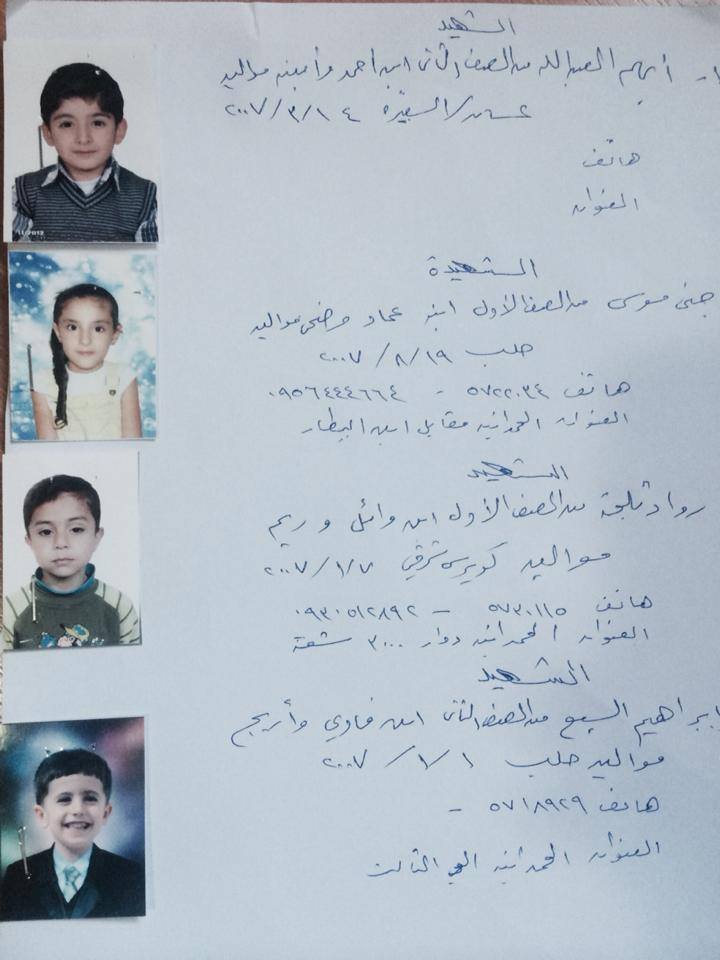 الشهيد
١- أيهم العبدالله من الصف الثاني ابن احمد وأمينه مواليد
عسان/السفيرة ١٤/٣/٢٠٠٧
هاتف
العنوان
11 2012
الشهيدة
جنى موسى من الصف الأول ابنة عماد وضحى مواليد
حلب ١٩/٨/٢٠٠٧
هاتف ٥٧٢٢٠٣٤ - ٠٩٥٦٤٤٤٦٦٤
العنوان الحمدانيه مقابل ابن البيطار
الشهيد
رواد ثلجة من الصف الأول ابن وائل وريم
مواليد كويرس شرقي ٧/١/٢٠٠٧
هاتف ٥٧٣٠١١٥ - ٠٩٣٠٥١٢٨٩٢
العنوان الحمدانيه دوار ٣٠٠٠ شقة
الشهيد
ابراهيم السبع من الصف الثاني ابن فادي وأريج
مواليد حلب ١/١/٢٠٠٧
هاتف ٥٧١٨٩٢٩ -
العنوان الحمدانيه الحي الثالث